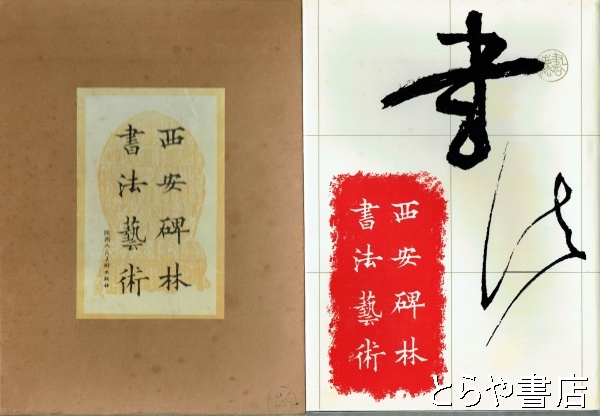 西安碑林
書法藝術
陕西人民美術出版社
書法
西安碑林
書法藝術
とらや書店